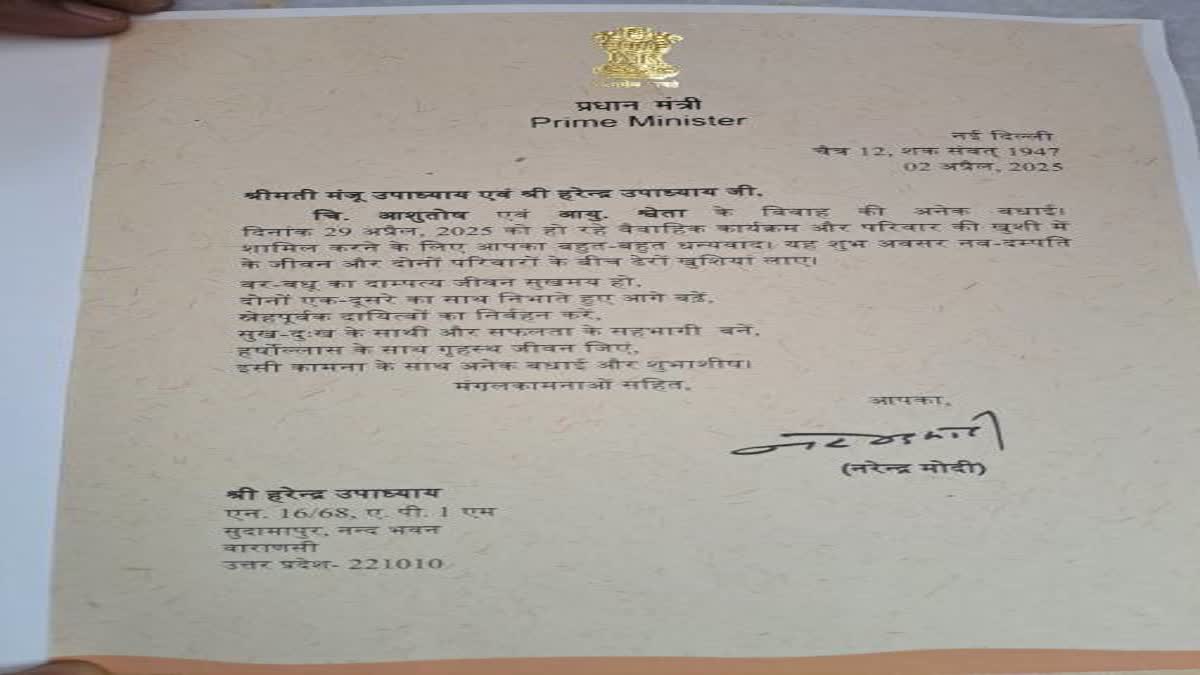 प्रधान मंत्री
Prime Minister
नई दिल्ली
चैत्र 12, शक संवत् 1947
02 अप्रैल, 2025
श्रीमती मंजू उपाध्याय एवं श्री हरेन्द्र उपाध्याय जी,
चि. आशुतोष एवं आयु. श्वेता के विवाह की अनेक बधाई।
दिनांक 29 अप्रैल, 2025 को हो रहे वैवाहिक कार्यक्रम और परिवार की खुशी में
शामिल करने के लिए आपका बहुत-बहुत धन्यवाद। यह शुभ अवसर नव-दम्पति
के जीवन और दोनों परिवारों के बीच ढेरों खुशियां लाए।
वर-वधू का दाम्पत्य जीवन सुखमय हो,
दोनों एक-दूसरे का साथ निभाते हुए आगे बढ़ें,
स्नेहपूर्वक दायित्वों का निर्वहन करें,
सुख-दुःख के साथी और सफलता के सहभागी बनें,
हर्षोल्लास के साथ गृहस्थ जीवन जिएं,
इसी कामना के साथ अनेक बधाई और शुभाशीष।
मंगलकामनाओं सहित,
आपका,
(नरेन्द्र मोदी)
श्री हरेन्द्र उपाध्याय
एन. 16/68, ए. पी. 1 एम
सुदामापुर, नन्द भवन
वाराणसी
उत्तर प्रदेश- 221010